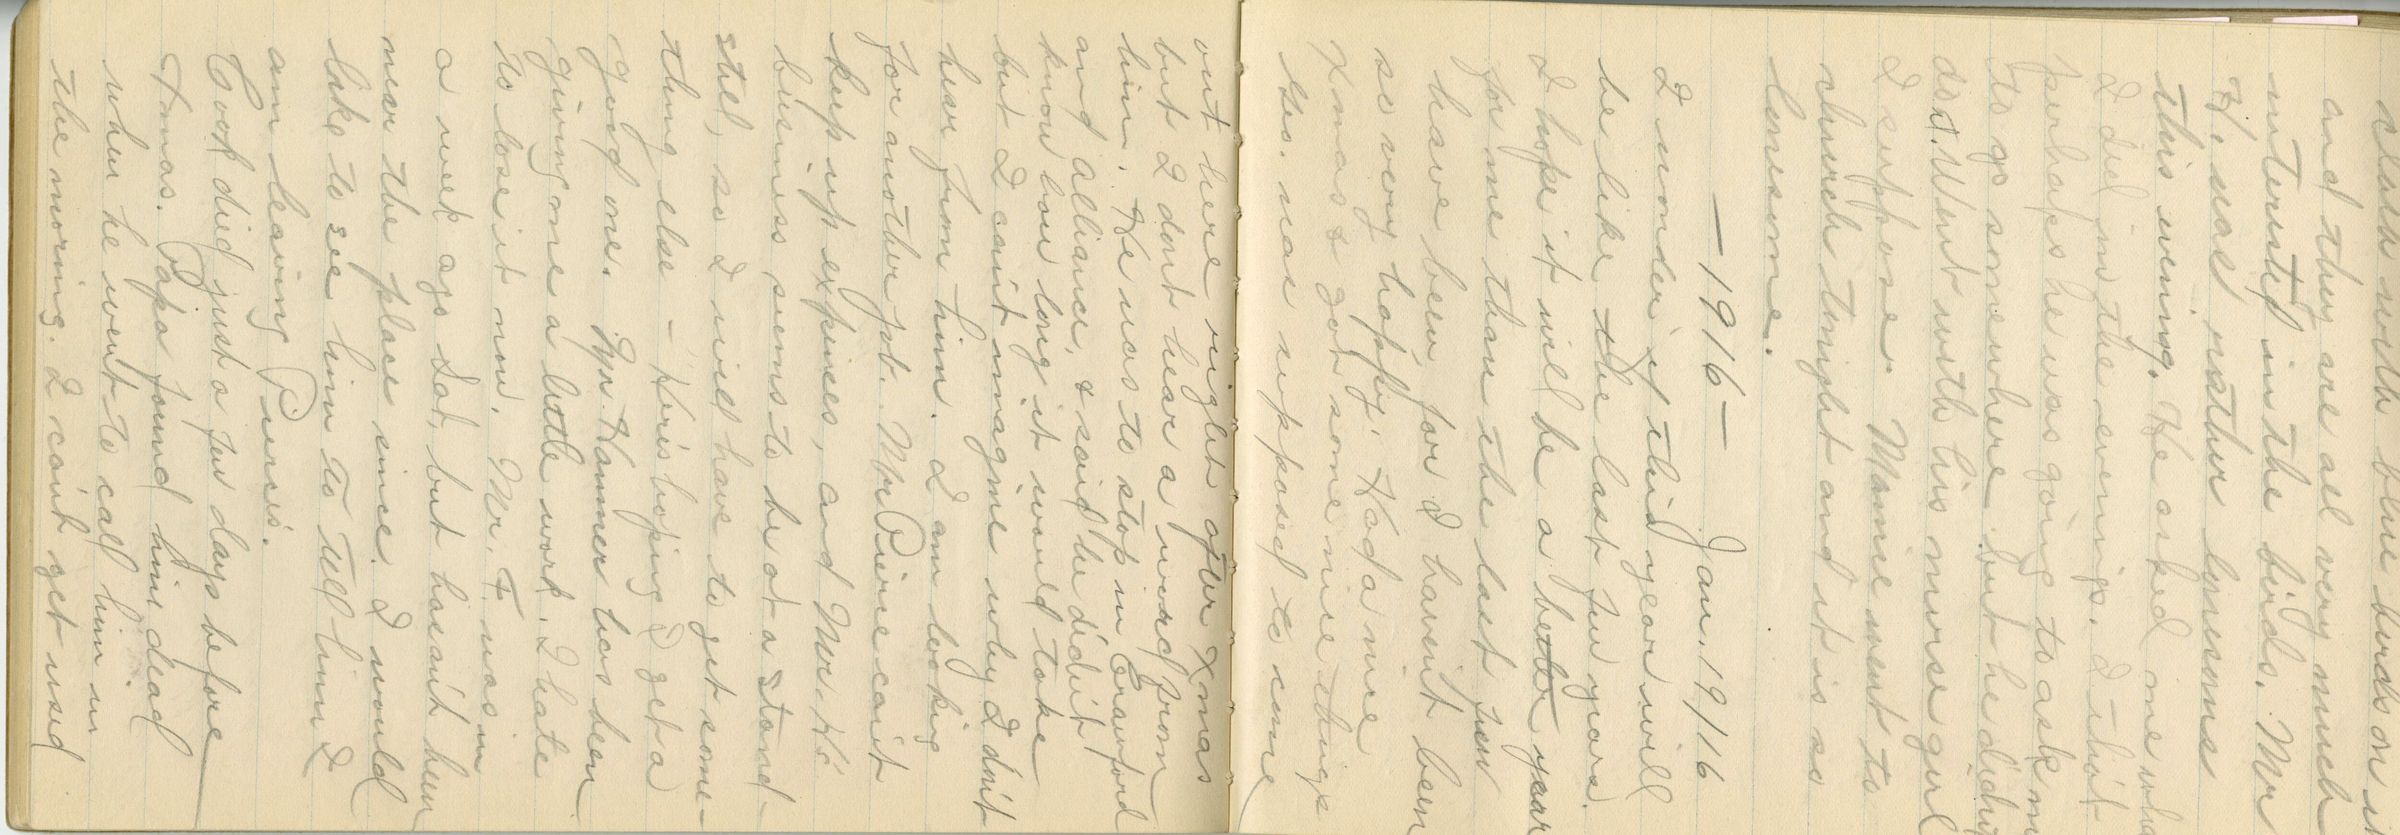 class with blue birds on it
and they are all very much
interested in the birds. Mr
H. was rather lonesome
this evening. He asked me what
I did in the evenings. I tho't
perhaps he was going to ask me
to go somewhere but he didn't
do it. Went with his nurse girl
I suppose. Mamie went to
church tonight and it is so
lonesome.
— 1916 — Jan. 1916
I wonder if this year will
be like the last few years.
I hope it will be a better year
for me than the last few
have been for I haven't been
so very happy. Had a nice
Xmas & got some nice things
Geo. was supposed to come
out here right after Xmas
but I don't hear a word from
him. He was to stop in Crawford
and Alliance, & said he didn't
know how long it would take
but I can't imagine why I don't
hear from him. I am looking
for another job. Mr Pierce can't
keep up expenses, and Mr. H's
business seems to be at a stand-
still, so I will have to get some-
thing else — Here's hoping I get a
good one. Mr. Hanner has been
giving me a little work. I hate
to lose it now. Mr. F. was in
a week ago Sat, but hasn't been
near the place since. I would
like to see him to tell him I
am leaving Pierces.
Cook died just a few days before
Xmas. Papa found him dead
when he went to call him in
the morning. I can't get used